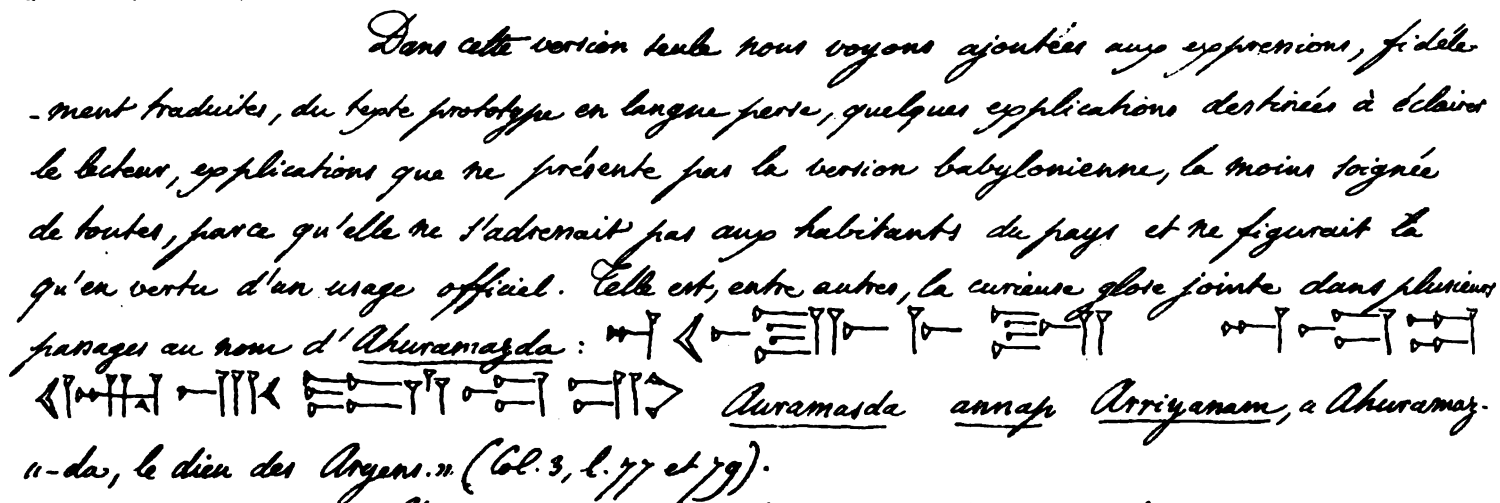 Dans cette version seule nous voyons ajoutées aux expressions, fidèle-
-ment traduites, du texte prototype en langue perse, quelques explications destinées à éclairer
le lecteur, explications que ne présente pas la version babylonienne, la moins soignée
de toutes, parce qu'elle ne s'adressait pas aux habitants du pays et ne figurait là
qu'en vertu d'un usage officiel. Telle est, entre autres, la curieuse glose jointe dans plusieurs
passages au nom d'Ahuramazda :
Auramasda annap Arriyanam, « Ahuramaz-
«-da, le dieu des Aryens.» (Col. 3, l. 77 et 79).